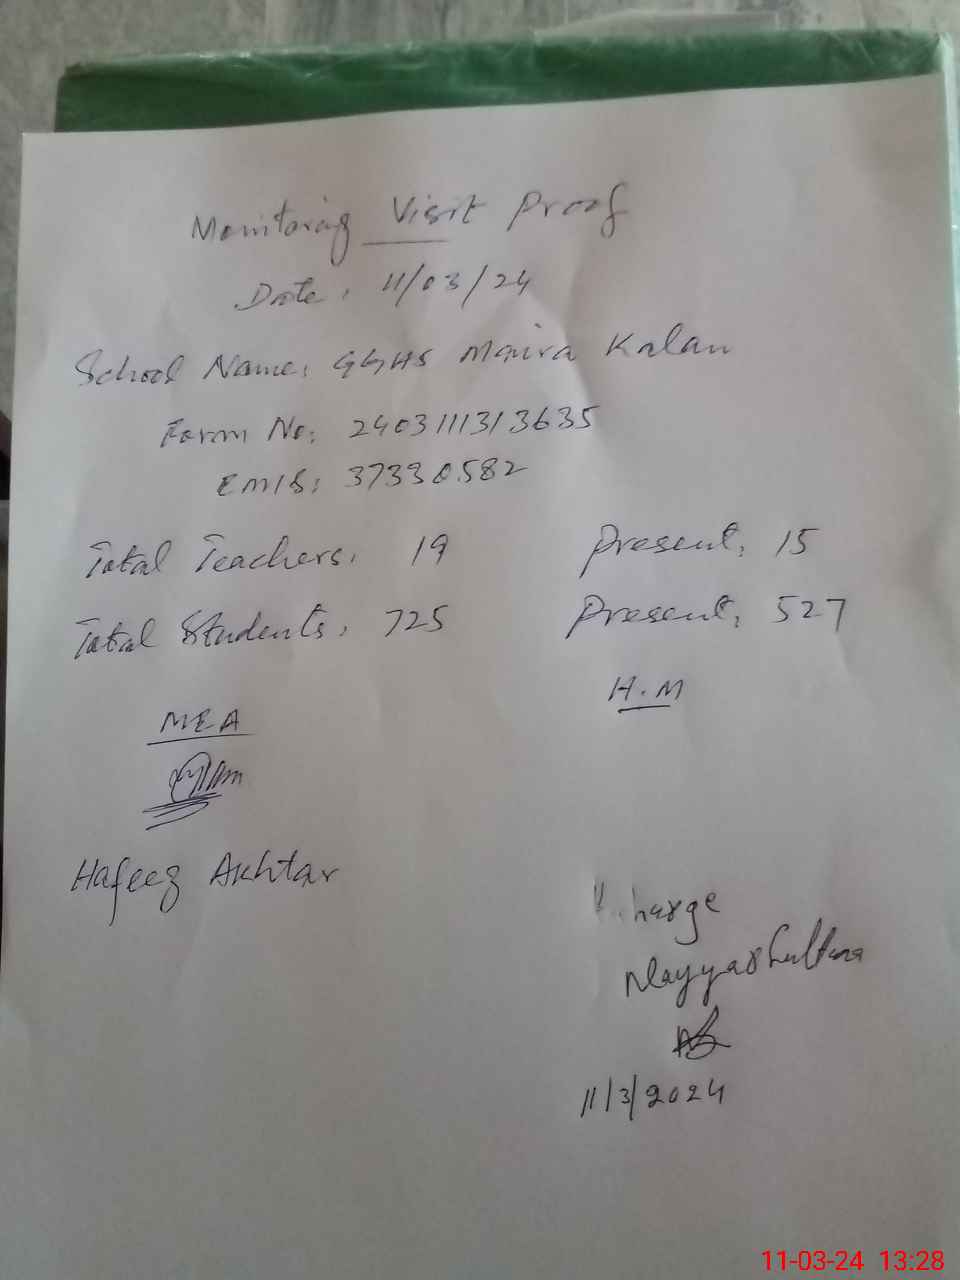 Monitoring Visit Proof
Date: 11/03/24
School Name: GGHS Maira Kalan
Form No: 2403111313635
EMIS: 37330582
Total Teachers: 19 Present: 15
Total Students: 725 Present: 527
H.M
MEA
Hafeez Akhtar
Nayyar Sultana
11/3/2024
11-03-24 13:28